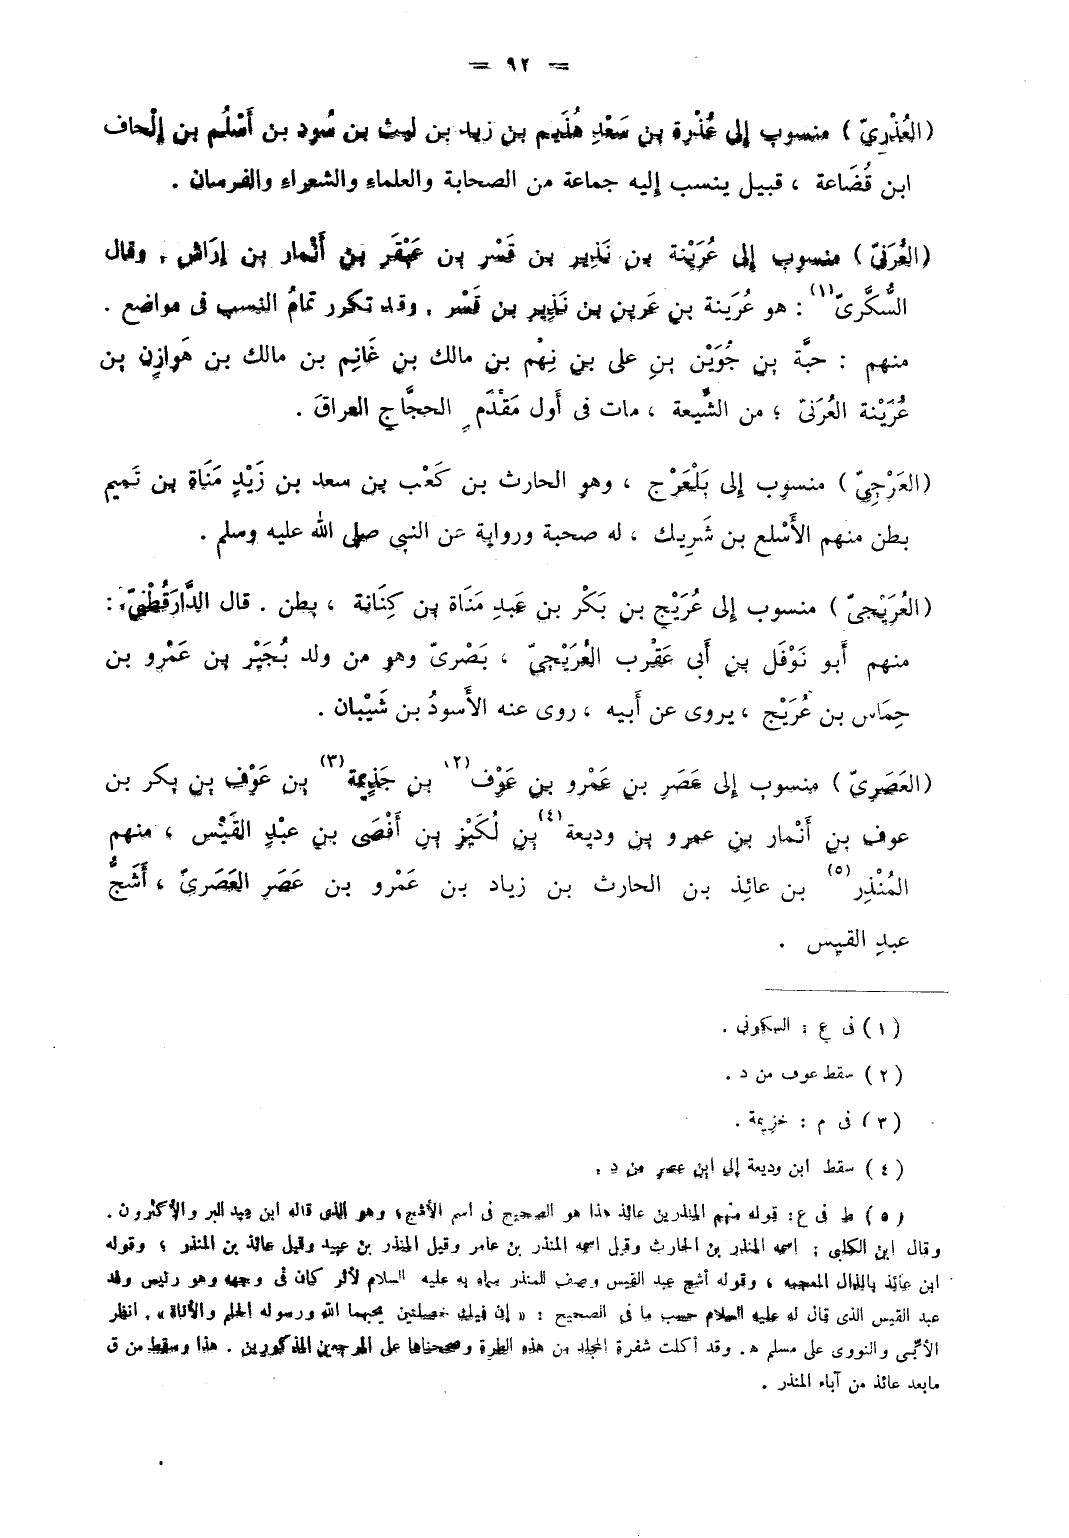 = ٩٢ =
(العُذْرِيّ) منسوب إلى عُذْرة بن سَعْدِ هُذَيم بن زيد بن ليث بن سُود بن أَسْلُم بن إلْحاف
ابن قُضَاعة ، قبيل ينسب إليه جماعة من الصحابة والعلماء والشعراء والفرسان .
(العُرَنىّ) منسوب إلى عُرَيْنة بن نَذِير بن قَسْر بن عَبْقَر بن أَنْمار بن إرَاش . وقال
السُّكَّرىّ(١) : هو عُرَينة بن عَرين بن نَذِير بن قَسْر . وقد تكرر تمامُ النسب فى مواضع .
منهم : حبَّة بن جُوَيْن بنِ على بن نِهْم بن مالك بن غَانِم بن مالك بن هَوازِن بن
عُرَيْنة العُرَنىّ ؛ من الشِّيعة ، مات فى أول مَقْدَمِ الحجَّاج العراقَ .
(العَرْجِيّ) منسوب إلى بَلْعَرْج ، وهو الحارث بن كَعْب بن سعد بن زَيْدِ مَنَاةِ بن تَميم
بطن منهم الأَسْلع بن شَرِيك ، له صحبة ورواية عن النبي صلى الله عليه وسلم .
(العُرَيْجىّ) منسوب إلى عُرَيْج بن بَكْر بن عَبدِ مَنَاة بن كِنَانة ، بطن . قال الدَّارَقُطْنىّ :
منهم أَبو نَوْفَل بن أَبى عَقْرب العُرَيْجىّ ، بَصْرىّ وهو من ولد بُجَيْر بن عَمْرو بن
حِمَاس بن عُرَيْج ، يروى عن أَبيه ، روى عنه الأَسودُ بن شَيْبان .
(العَصَرِيّ) منسوب إلى عَصَرِ بن عَمْرو بن عَوْف(٢) بن جَذِيمة(٣) بن عَوْف بن بكر بن
عوف بن أَنْمار بن عمرو بن وديعة(٤) بن لُكَيْز بن أَفْصَى بن عبْدِ القَيْس ، منهم
المُنْذِر(٥) بن عائِذ بن الحارث بن زياد بن عَمْرو بن عَصَرِ العَصَرىّ ، أَشَجُّ
عبدِ القيس .
(١) فى ع : السكونى .
(٢) سقط عوف من د .
(٣) فى م : خزيمة .
(٤) سقط ابن وديعة إلى ابن عصر من د .
(٥) ط فى ع : قوله منهم المنذر بن عائذ هذا هو الصحيح فى اسم الأشج ، وهو الذى قاله ابن عبد البر والأكثرون .
وقال ابن الكلبى ; اسمه المنذر بن الحارث وقيل اسمه المنذر بن عامر وقيل المنذر بن عبيد وقيل عائذ بن المنذر ؛ وقوله
ابن عائذ بالذال المعجمه ، وقوله أشج عبد القيس وصف للمنذر سماه به عليه السلام لأثر كان فى وجهه وهو رئيس وفد
عبد القيس الذى قال له عليه السلام حسب ما فى الصحيح : « إن فيك خصلتين يحبهما الله ورسوله الحلم والأناة » . انظر
الأبى والنووى على مسلم ه . وقد أكلت شفرة المجلد من هذه الطرة وصححناها على المرجعين المذكورين . هذا وسقط من ق
مابعد عائذ من آباء المنذر .